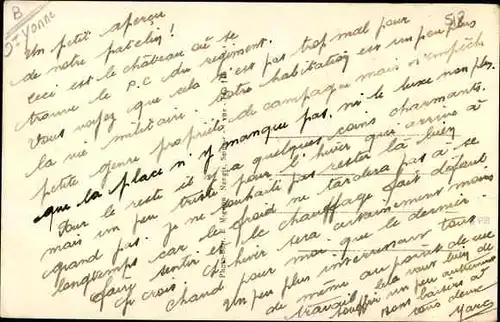 B
Yonne
518
Un petit aperçu
de notre patelin!
Ceci est le château où se
trouve le P.C du régiment.
Vous voyez que cela n'est pas trop mal pour
la vie militaire. Notre habitation est un peu plus
petite genre propriété de campagne mais n'empêche
que la place n'y manque pas, ni le luxe non plus.
Pour le reste il y a quelques coins charmants.
mais un peu triste pour l'hiver qui arrive à
grand pas. Je ne souhaite pas rester là bien
longtemps car le froid ne tardera pas à se
faire sentir et le chauffage fait défaut
Je crois que l'hiver sera certainement moins
chaud pour moi que le dernier.
Un peu plus intéressant tous
de même au point de vue
travail. Cela vaut bien de
souffrir un peu
bons baisers à
vous deux
Marc